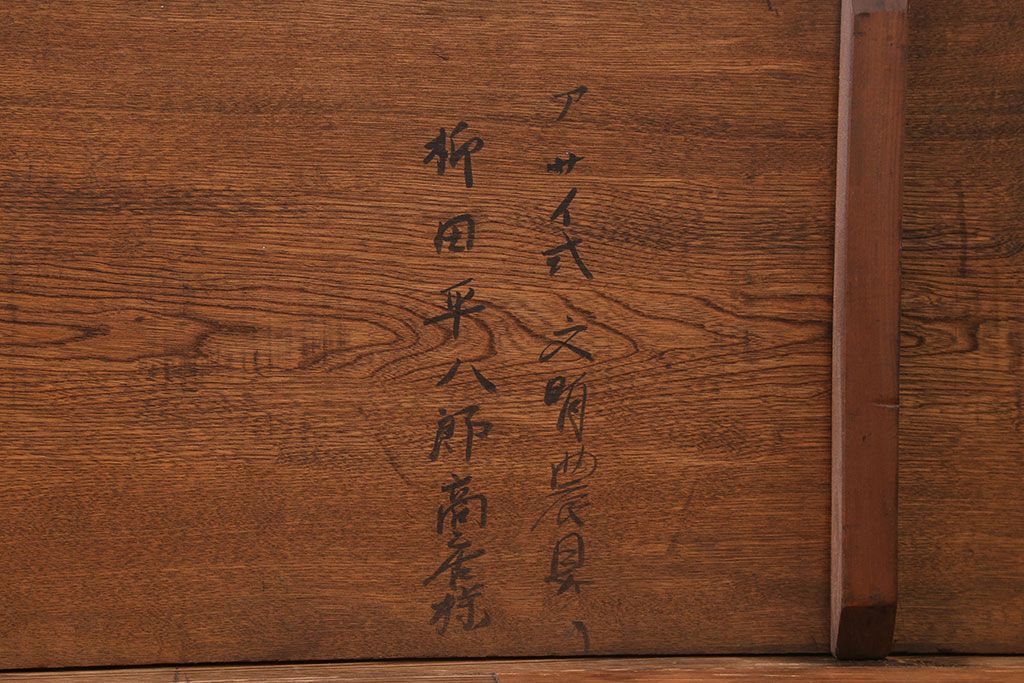 アサイ式文明農具
柳田平八郎商店様